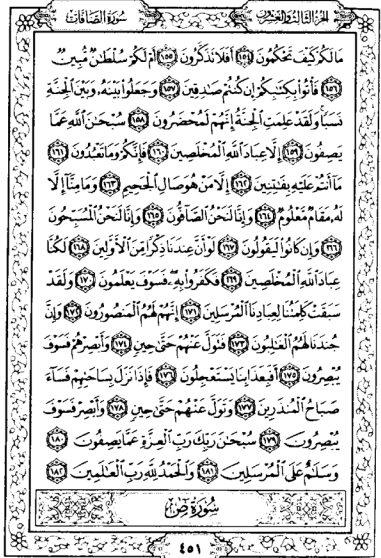 الجزء الثالث والعشرون
سورة الصافات
مَا لَكُمْ كَيْفَ تَحْكُمُونَ ١٥٤ أَفَلَا تَذَكَّرُونَ ١٥٥ أَمْ لَكُمْ سُلْطَٰنٌ مُّبِينٌ
١٥٦ فَأْتُوا۟ بِكِتَٰبِكُمْ إِن كُنتُمْ صَٰدِقِينَ ١٥٧ وَجَعَلُوا۟ بَيْنَهُۥ وَبَيْنَ ٱلْجِنَّةِ
نَسَبًا وَلَقَدْ عَلِمَتِ ٱلْجِنَّةُ إِنَّهُمْ لَمُحْضَرُونَ ١٥٨ سُبْحَٰنَ ٱللَّهِ عَمَّا
يَصِفُونَ ١٥٩ إِلَّا عِبَادَ ٱللَّهِ ٱلْمُخْلَصِينَ ١٦٠ فَإِنَّكُمْ وَمَا تَعْبُدُونَ ١٦١
مَآ أَنتُمْ عَلَيْهِ بِفَٰتِنِينَ ١٦٢ إِلَّا مَنْ هُوَ صَالِ ٱلْجَحِيمِ ١٦٣ وَمَا مِنَّآ إِلَّا
لَهُۥ مَقَامٌ مَّعْلُومٌ ١٦٤ وَإِنَّا لَنَحْنُ ٱلصَّآفُّونَ ١٦٥ وَإِنَّا لَنَحْنُ ٱلْمُسَبِّحُونَ
١٦٦ وَإِن كَانُوا۟ لَيَقُولُونَ ١٦٧ لَوْ أَنَّ عِندَنَا ذِكْرًا مِّنَ ٱلْأَوَّلِينَ ١٦٨ لَكُنَّا
عِبَادَ ٱللَّهِ ٱلْمُخْلَصِينَ ١٦٩ فَكَفَرُوا۟ بِهِۦ فَسَوْفَ يَعْلَمُونَ ١٧٠ وَلَقَدْ
سَبَقَتْ كَلِمَتُنَا لِعِبَادِنَا ٱلْمُرْسَلِينَ ١٧١ إِنَّهُمْ لَهُمُ ٱلْمَنصُورُونَ ١٧٢ وَإِنَّ
جُندَنَا لَهُمُ ٱلْغَٰلِبُونَ ١٧٣ فَتَوَلَّ عَنْهُمْ حَتَّىٰ حِينٍ ١٧٤ وَأَبْصِرْهُمْ فَسَوْفَ
يُبْصِرُونَ ١٧٥ أَفَبِعَذَابِنَا يَسْتَعْجِلُونَ ١٧٦ فَإِذَا نَزَلَ بِسَاحَتِهِمْ فَسَآءَ
صَبَاحُ ٱلْمُنذَرِينَ ١٧٧ وَتَوَلَّ عَنْهُمْ حَتَّىٰ حِينٍ ١٧٨ وَأَبْصِرْ فَسَوْفَ
يُبْصِرُونَ ١٧٩ سُبْحَٰنَ رَبِّكَ رَبِّ ٱلْعِزَّةِ عَمَّا يَصِفُونَ ١٨٠
وَسَلَٰمٌ عَلَى ٱلْمُرْسَلِينَ ١٨١ وَٱلْحَمْدُ لِلَّهِ رَبِّ ٱلْعَٰلَمِينَ ١٨٢
سُورَةُ صٓ
٤٥١